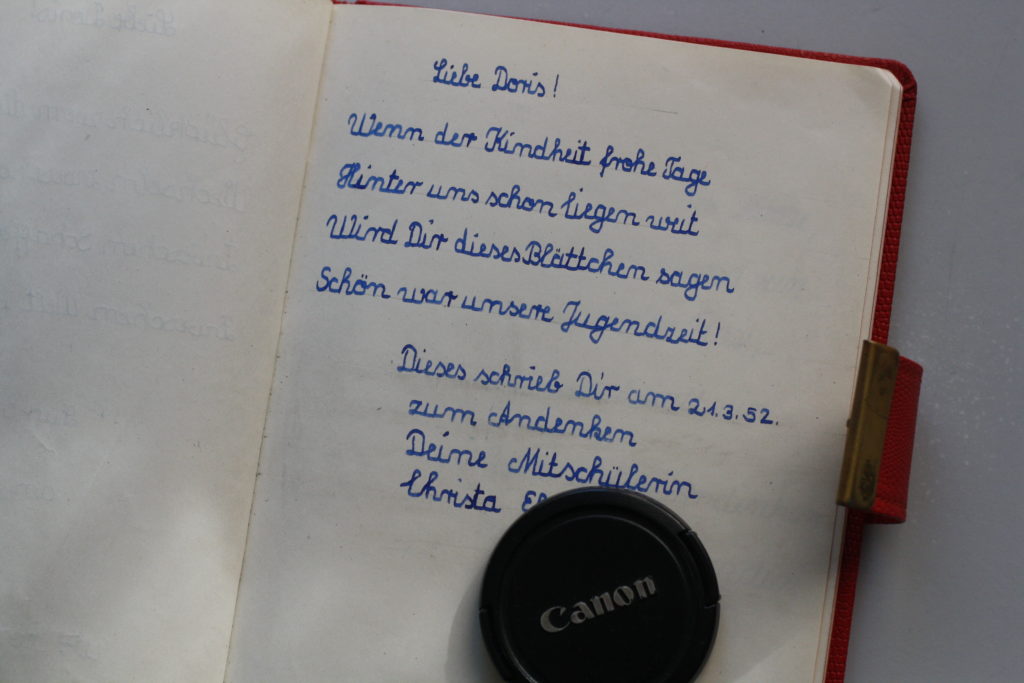 Liebe Doris!
Wenn der Kindheit frohe Tage
Hinter uns schon liegen weit
Wird Dir dieses Blättchen sagen
Schön war unsere Jugendzeit!
Dieses schrieb Dir am 21.3.52.
zum Andenken
Deine Mitschülerin
Christa
Canon